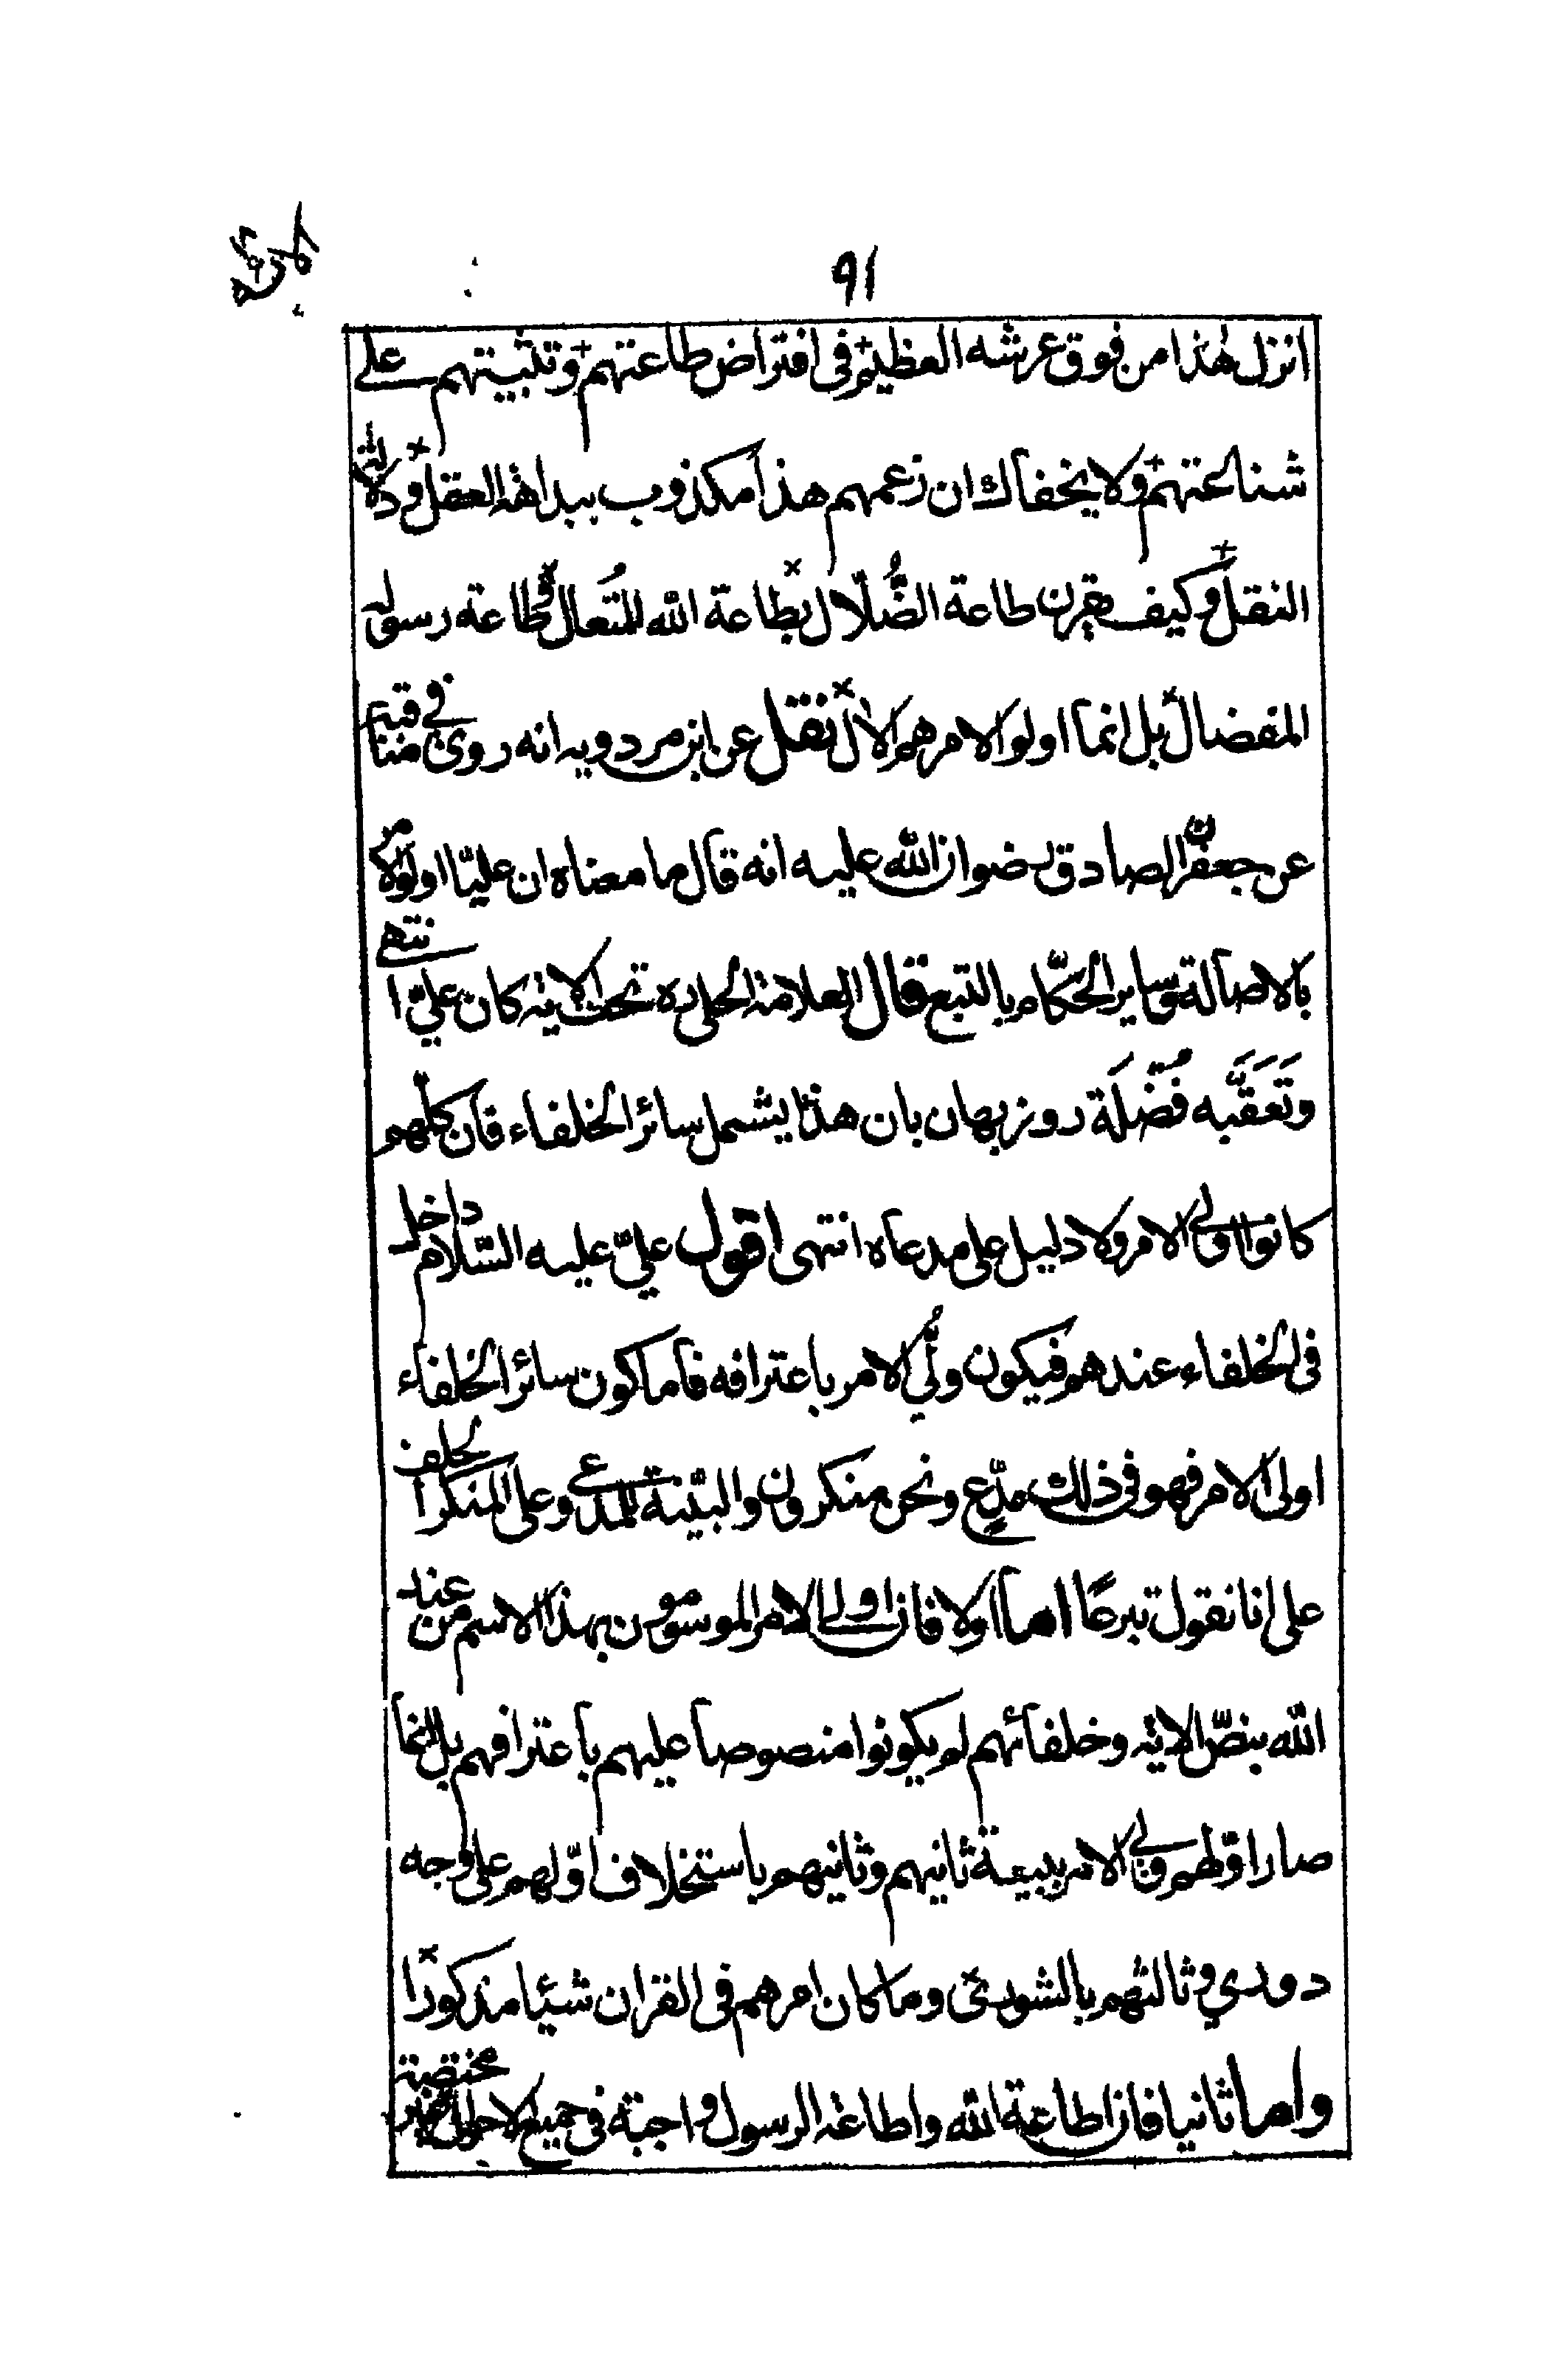 ٩١
انزل هذا من فوق عرشه العظيم في افتراض طاعتهم وتثبيتهم على
شناعتهم ولا يخفاك ان زعمهم هذا مكذوب ببداهة العقل ودلالة
النقل وكيف يقرن طاعة الضُّلّال بطاعة الله المُتعال وطاعة رسوله
المفضال بل انما اولوا الامر هم الآل نقل عن ابن مردويه انه روى في مناقبه
عن جعفر الصادق رضوان الله عليه انه قال ما معناه ان عليّا اولو الامر
بالاصالة وساير الحكّام بالتبع قال العلامة الحلي ره تحت الاية كان عليّ انتهى
وتَعَقَّبه فُضْلَة روزبهان بان هذا يشمل سائر الخلفاء فان كلّهم
كانوا اولي الامر ولا دليل على مدعاه انتهى اقول عليّ عليه السّلام داخل
في الخلفاء عندهم فيكون وليُّ الامر باعترافه فاما كون سائر الخلفاء
اولى الامر فهو في ذلك مدّعٍ ونحن منكرون والبيّنة للمدعي وعلى المنكر الحلف
على انا نقول تبرعًا اما اولا فان اولي الامر الموسومون بهذا الاسم من عند
الله بنصّ الاية وخلفائهم لم يكونوا منصوصا عليهم باعترافهم بل انما
صار اوّلهم ولي الامر ببيعة ثانيهم وثانيهم باستخلاف اوّلهم على وجه
دوري وثالثهم بالشورى وما كان امرهم في القران شيئا مذكورًا
واما ثانيا فان اطاعة الله واطاعة الرسول واجبة في جميع الاحوال غير مختصة